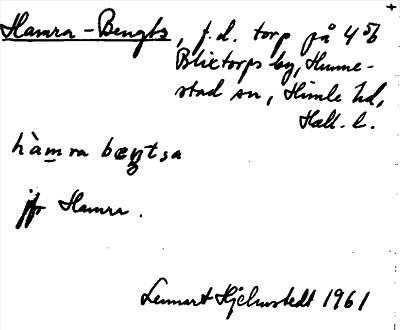 Hamra-Bengts, f.d. torp på 4
Blixtorps by, Hunne-
stad sn, Himle hd,
Hall. l.
hàmra bæŋtsa
jfr Hamra.
Lennart Hjelmstedt 1961